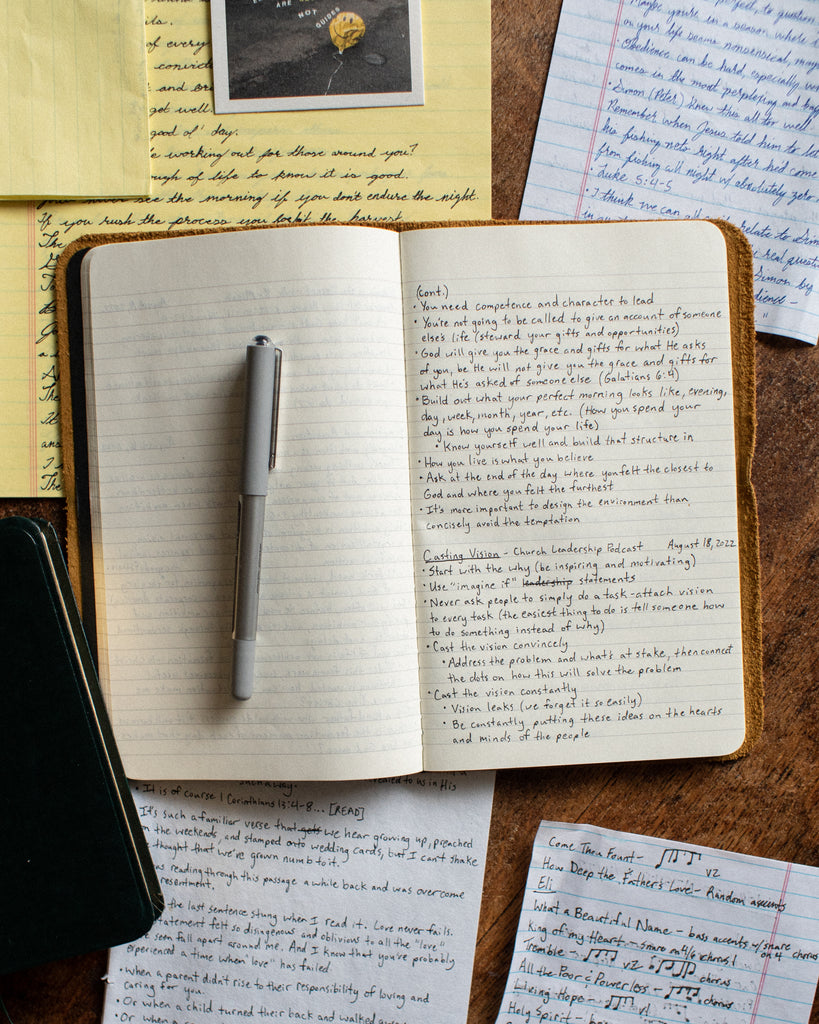 ARE
NOT
GUIDES
of every
convict
and
get well
good ol' day.
working out for those around you?
of life to know it is good.
never see the morning if you don't endure the night.
If you rush the process you forfeit the harvest.
to question
on your life seems nonsensical
Obedience can be hard, especially
comes in the most perplexing and
• Simon (Peter) knew this all too well
Remember when Jesus told him to let
his fishing nets right after he'd come
from fishing all night w/ absolutely zero
• Luke 5:4-5
• I think we can all relate to Simon
real question
Simon by
(cont.)
• You need competence and character to lead
• You're not going to be called to give an account of someone
else's life (steward your gifts and opportunities)
• God will give you the grace and gifts for what He asks
of you, be He will not give you the grace and gifts for
what He's asked of someone else (Galatians 6:4)
• Build out what your perfect morning looks like, evening,
day, week, month, year, etc. (How you spend your
day is how you spend your life)
• Know yourself well and build that structure in
• How you live is what you believe
• Ask at the end of the day where you felt the closest to
God and where you felt the furthest
• It's more important to design the environment than
concisely avoid the temptation
Casting Vision - Church Leadership Podcast August 18, 2022
• Start with the why (be inspiring and motivating)
• Use "imagine if" leadership statements
• Never ask people to simply do a task - attach vision
to every task (the easiest thing to do is tell someone how
to do something instead of why)
• Cast the vision convincely
• Address the problem and what's at stake, then connect
the dots on how this will solve the problem
• Cast the vision constantly
• Vision leaks (we forget it so easily)
• Be constantly putting these ideas on the hearts
and minds of the people
such a way. revealed to us in His
• It is of course 1 Corinthians 13:4-8... [READ]
It's such a familiar verse that gets we hear growing up, preached
on the weekends, and stamped onto wedding cards, but I can't shake
thought that we've grown numb to it.
was reading through this passage a while back and was overcome
resentment.
the last sentence stung when I read it. Love never fails.
statement felt so disingenous and oblivious to all the "love"
seen fall apart around me. And I know that you've probably
experienced a time when "love" has failed.
• When a parent didn't rise to their responsibility of loving and
caring for you.
• Or when a child turned their back and walked
• Or when a
Come Thou Fount - V2
How Deep the Father's Love - Random accents
Eli
What a Beautiful Name - bass accents w/ snare on 4 chorus
King of my Heart - snare on 4/6 chorus 1
Tremble - V2 chorus
All the Poor & Powerless - chorus
Living Hope - V1
Holy Spirit -